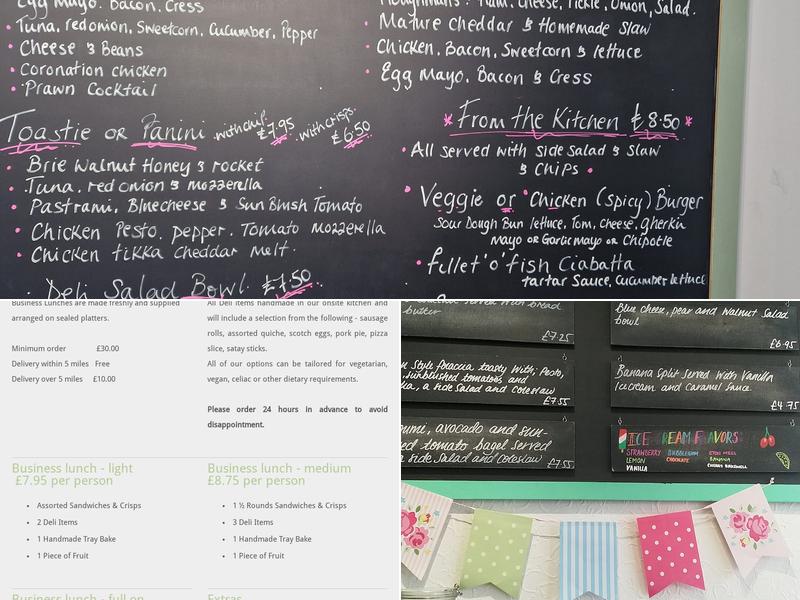 Egg Mayo. Bacon, Cress
Tuna, redonion, Sweetcorn, Cucumber, Pepper
Cheese & Beans
Coronation chicken
Prawn Cocktail
Toastie or Panini with chips £7.95 with crisps £6.50
Brie Walnut Honey & rocket
Tuna, red onion & mozzerella
Pastrami, Bluecheese & Sun Blush Tomato
Chicken Pesto. pepper. Tomato mozzerella
Chicken tikka Cheddar melt.
Deli Salad Bowl
Ham, Cheese, Pickle, Onion, Salad.
Mature cheddar & Homemade Slaw
Chicken, Bacon, Sweetcorn & lettuce
Egg Mayo. Bacon & Cress
From the Kitchen £8.50
All served with side salad & slaw
& Chips
Veggie or Chicken (spicy) Burger
Sour Dough Bun lettuce, Tom, cheese, gherkin
Mayo or Garlic mayo or Chipotle
fillet 'o' fish Ciabatta
tartar Sauce, Cucumber lettuce
Business Lunches are made freshly and supplied
arranged on sealed platters.
Minimum order £30.00
Delivery within 5 miles Free
Delivery over 5 miles £10.00
All Deli items handmade in our onsite kitchen and
will include a selection from the following - sausage
rolls, assorted quiche, scotch eggs, pork pie, pizza
slice, satay sticks.
All of our options can be tailored for vegetarian,
vegan, celiac or other dietary requirements.
Please order 24 hours in advance to avoid
disappointment.
Business lunch - light
£7.95 per person
Assorted Sandwiches & Crisps
2 Deli Items
1 Handmade Tray Bake
1 Piece of Fruit
Business lunch - medium
£8.75 per person
1 ½ Rounds Sandwiches & Crisps
3 Deli Items
1 Handmade Tray Bake
1 Piece of Fruit
Business lunch - full on
Extras
served with bread
butter
£7.25
Style focaccia toasty with; Pesto,
sunblushed tomatoes and
a side Salad and coleslaw
£7.55
avocado and sun-
tomato bagel served
side Salad and coleslaw
£7.55
Blue cheese, pear and Walnut Salad
bowl
£6.95
Banana Split Served With Vanilla
Icecream and Caramel Sauce.
£4.75
ICE CREAM FLAVORS:
STRAWBERRY BUBBLEGUM
LEMON CHOCOLATE BANANA
VANILLA CHERRY BAKEWELL